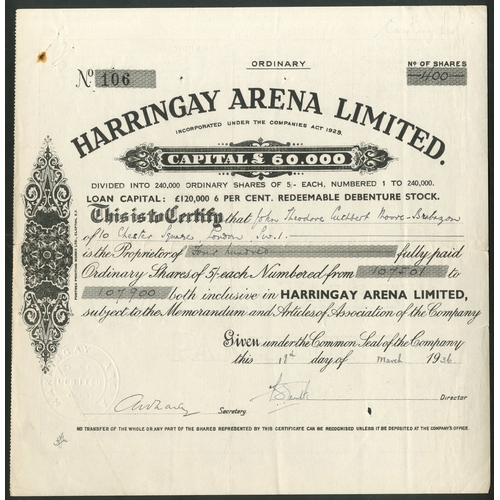 ORDINARY
No 106
No OF SHARES
400
HARRINGAY ARENA LIMITED.
INCORPORATED UNDER THE COMPANIES ACT 1929.
CAPITAL £ 60,000
DIVIDED INTO 240,000 ORDINARY SHARES OF 5/- EACH, NUMBERED 1 TO 240,000.
LOAN CAPITAL: £120,000 6 PER CENT. REDEEMABLE DEBENTURE STOCK.
This is to Certify that John Theodore Cuthbert Moore-Brabazon
of 10 Chester Square, London, S.W.1.
is the Proprietor of Four hundred fully paid
Ordinary Shares of 5/- each Numbered from 107501 to
107900 both inclusive in HARRINGAY ARENA LIMITED,
subject to the Memorandum and Articles of Association of the Company
Given under the Common Seal of the Company
this day of March 1936
Secretary.
Director
NO TRANSFER OF THE WHOLE OR ANY PART OF THE SHARES REPRESENTED BY THIS CERTIFICATE CAN BE RECOGNISED UNLESS IT BE DEPOSITED AT THE COMPANY'S OFFICE.